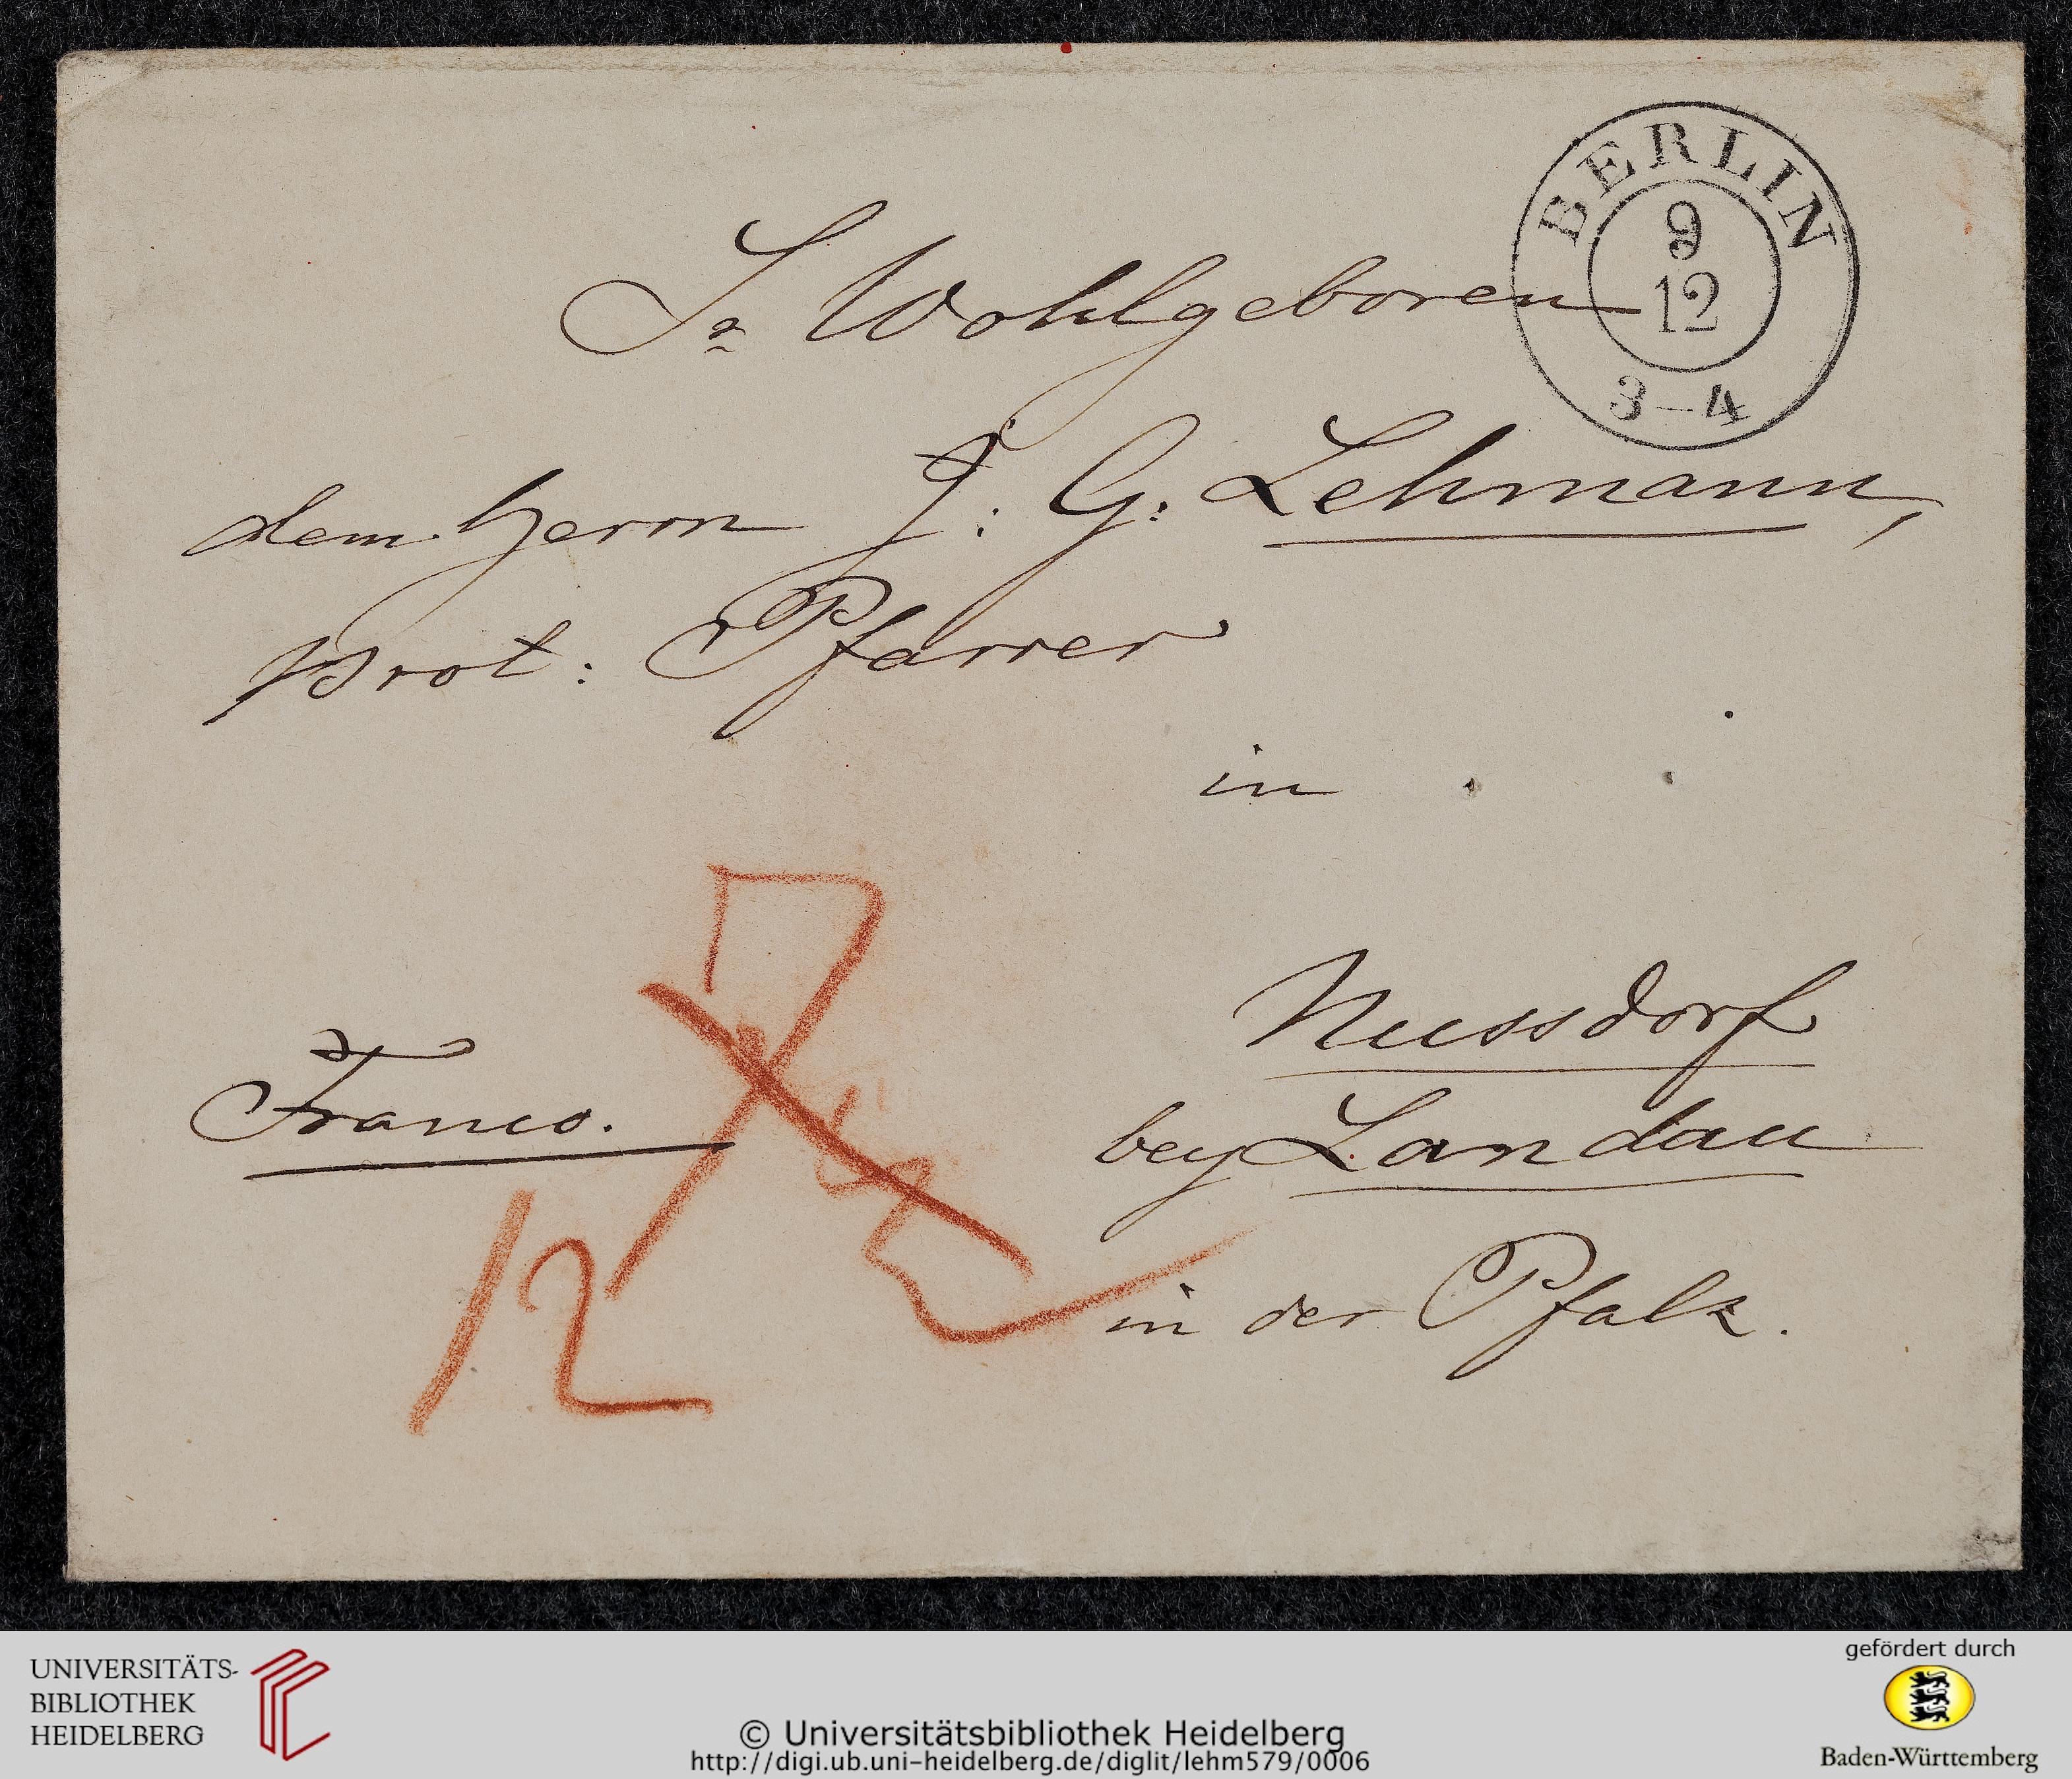 BERLIN
9
12
3–4
Sr Wohlgeboren
dem Herrn J: G: Lehmann,
Prot: Pfarrer
in
Nussdorf
Franco.
bey Landau
in der Pfalz.
12
UNIVERSITÄTS-
BIBLIOTHEK
HEIDELBERG
© Universitätsbibliothek Heidelberg
http://digi.ub.uni-heidelberg.de/diglit/lehm579/0006
gefördert durch
Baden-Württemberg